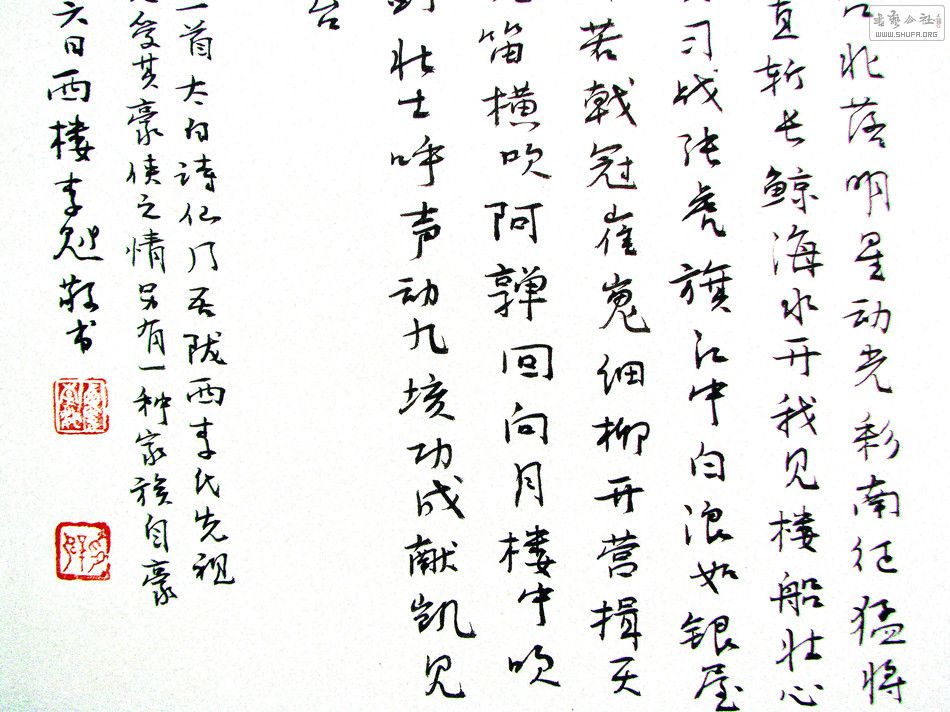 北落明星动光彩南征猛将
直斩长鲸海水开我见楼船壮心
习战张虎旗江中白浪如银屋
若戟冠崔嵬细柳开营揖天
笛横吹阿亸回向月楼中吹
壮士呼声动九垓功成献凯见
台
一首太白诗仙乃吾陇西李氏先祖
受其豪侠之情另有一种家族自豪
六日西楼李敬书
WWW.SHUFA.ORG